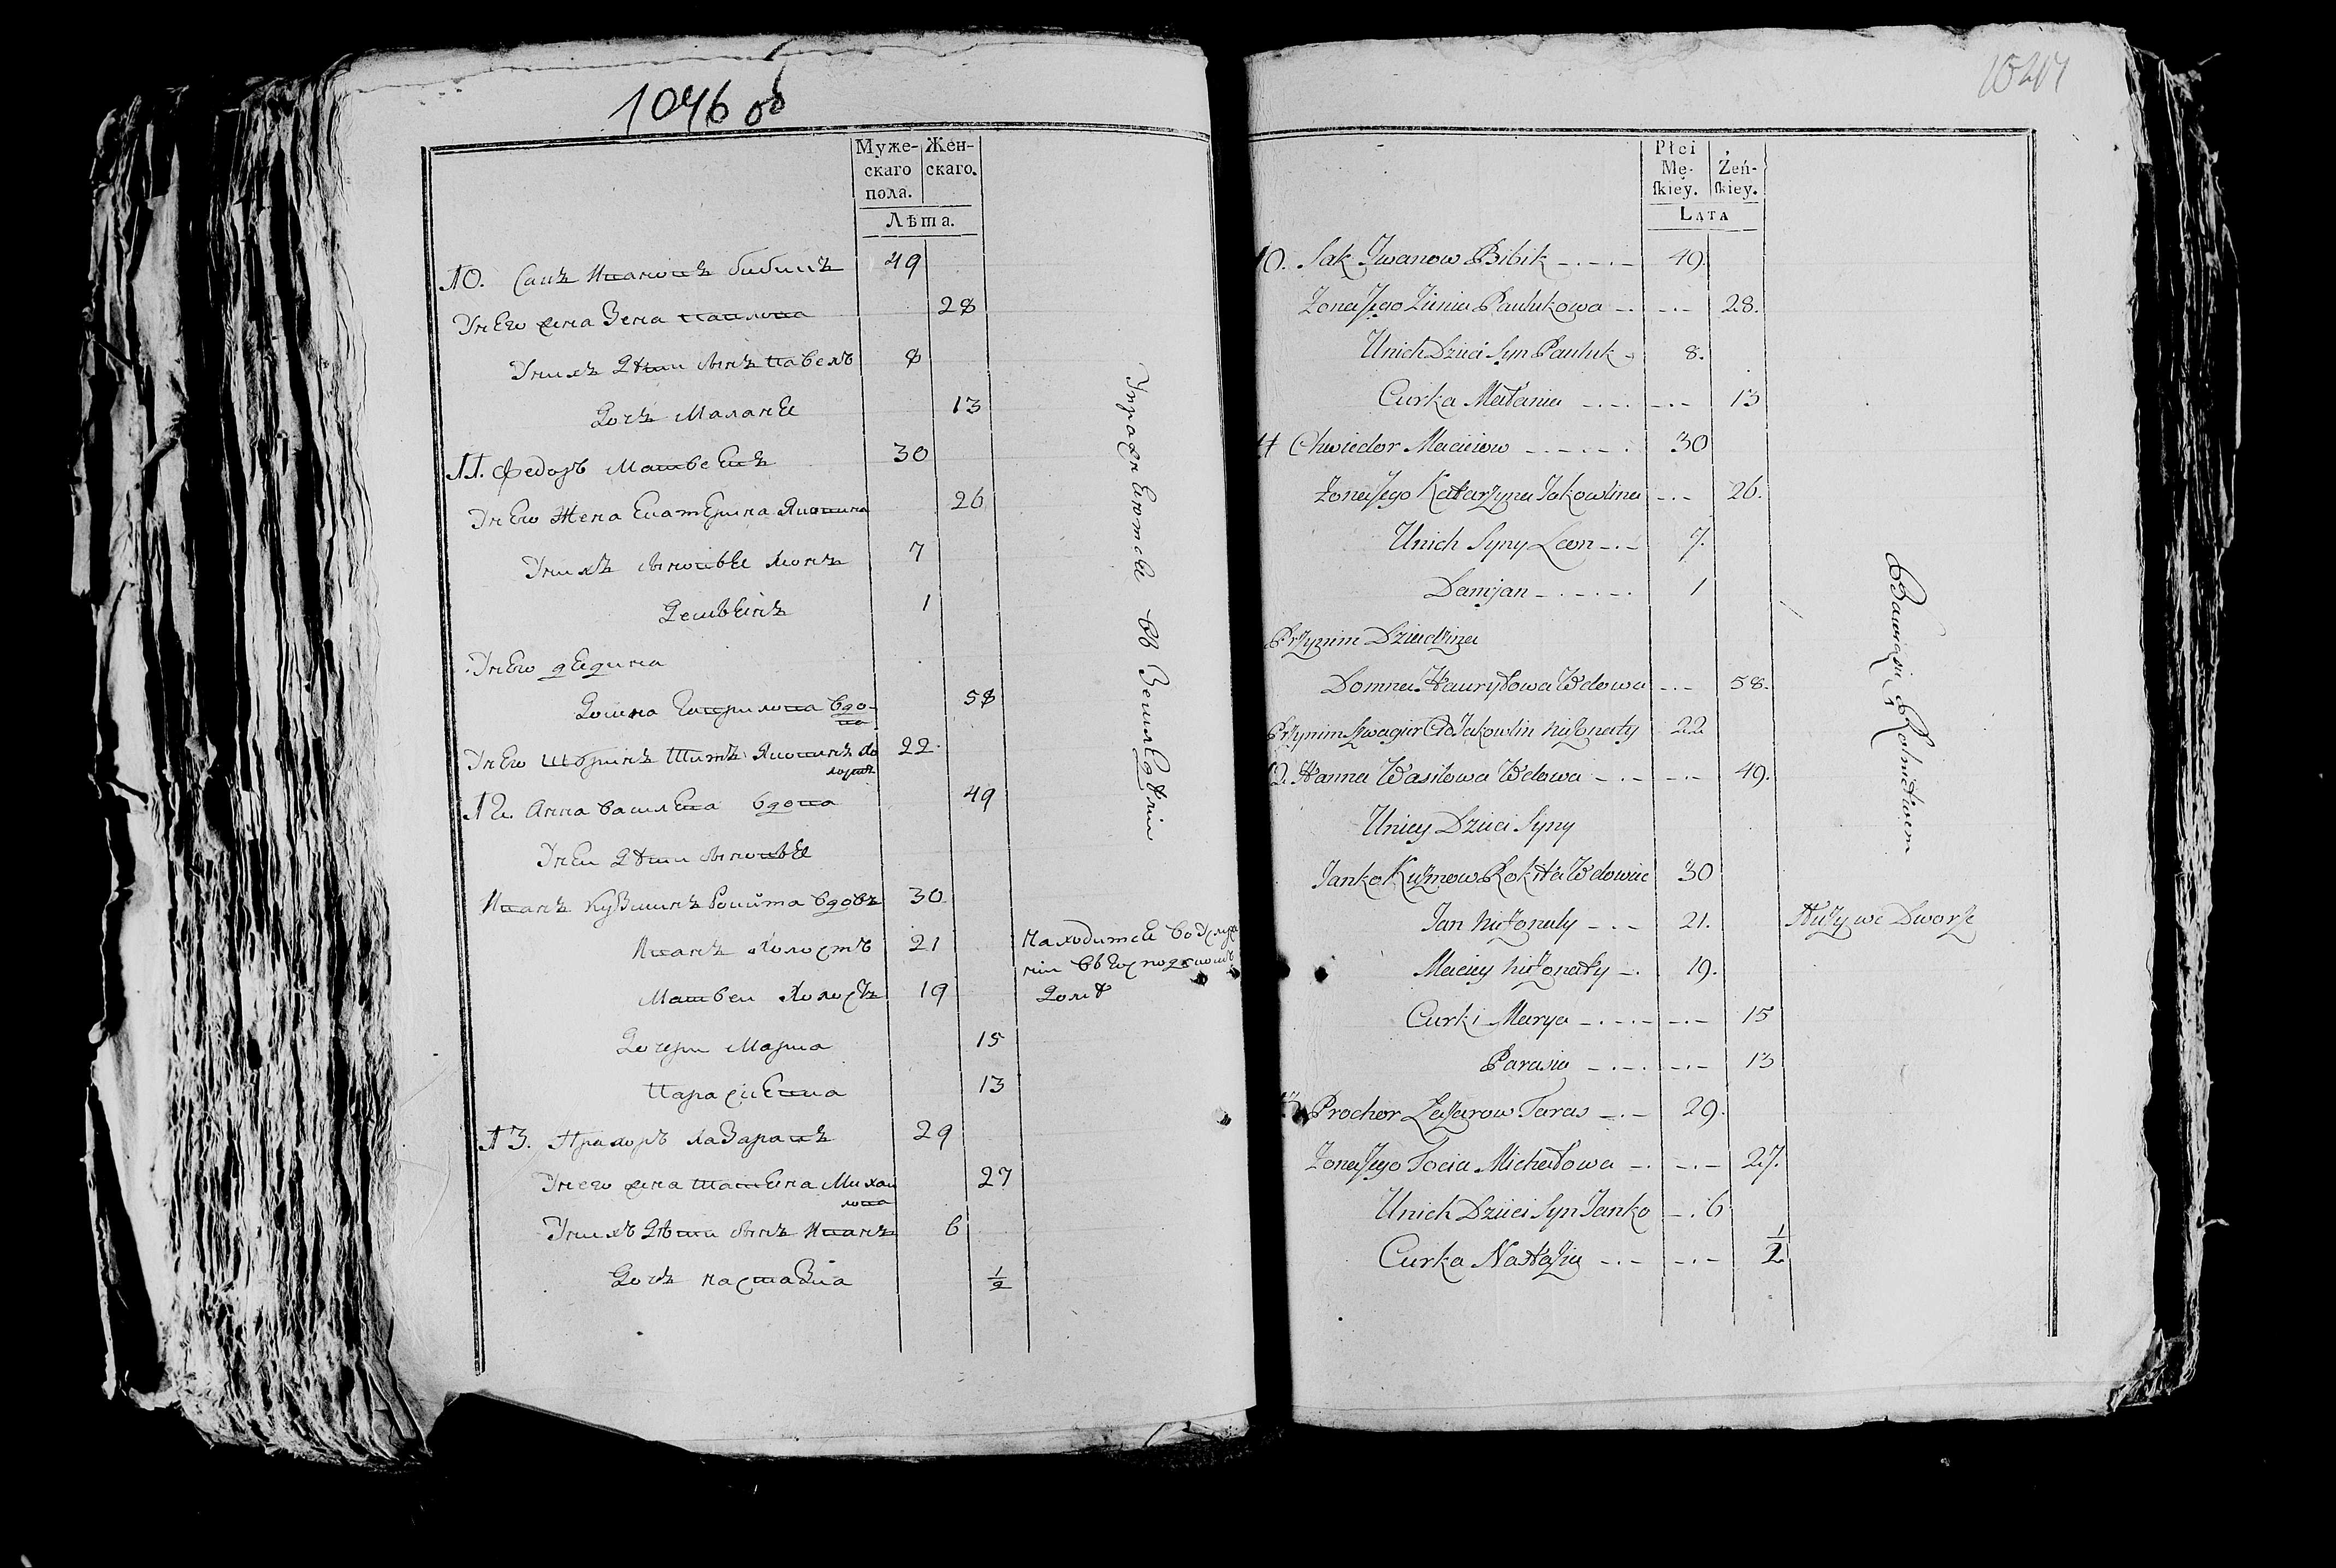 1046 об
Муже-
скаго
пола.
Жен-
скаго.
Лѣта.
10. Сакъ Ивановъ бибикъ 49
Унего жена Зеня Павлова 28
Унихъ Дѣти сынъ Павелъ 8
Дочъ Маланея 13
11. Федоръ Матвеевъ 30
Унего Жена Екатерина Яковлина 26
Унихъ сыновья Леонъ 7
Демьянъ 1
Унего дедина
Домна Гаврилова вдо-
ва 58
Унего Шуринъ Титъ Яковлинъ хо
лостъ 22.
12. Анна Васильева вдова 49
Уней Дѣти сыновья
Иванъ Кузминъ Рокита вдовъ 30.
Иванъ Холостъ 21
Матвей Холостъ 19
Находится въ Услуже
нии въ Господскомъ
Доме
Дочери Марья 15
Парасковия 13
13. Прохоръ Лазаровъ 29
Унего жена Татьяна Михай
лова 27
Унихъ Дѣти сынъ Иванъ 6
Дочъ Настазия 1/2
Упражняются въ Земледѣлии
Płci
Mę-
skiey.
Żeń-
skiey.
LATA
10. Sak Jwanow Bibik 49.
Zona Jego Zienia Paulukowa 28.
Unich Dzieci Syn Pauluk 8.
Curka Małania 13
11 Chwiedor Macieiow 30
Zona Jego Katarzyna Jakowlina 26.
Unich Syny Leon 7.
Damjan 1
Przynim Dziadzina
Domna Hauryłowa Wdowa 58.
Przynim Szwagier Jakowlin nieżonaty 22
12. Hanna Wasilowa Wdowa 49.
Uniey Dzieci Syny
Janko Kuzmow Rokita Wdowiec 30
Jan nieżonaty 21. Służy we Dworze
Maciey nieżonaty 19.
Curki Marya 15
Parasia 13
Prochor Łazarow Taras 29.
Zona Jego Tocia Michałowa 27.
Unich Dzieci Syn Janko 6
Curka Natazia 1/2
Bawią się Rolnictwem